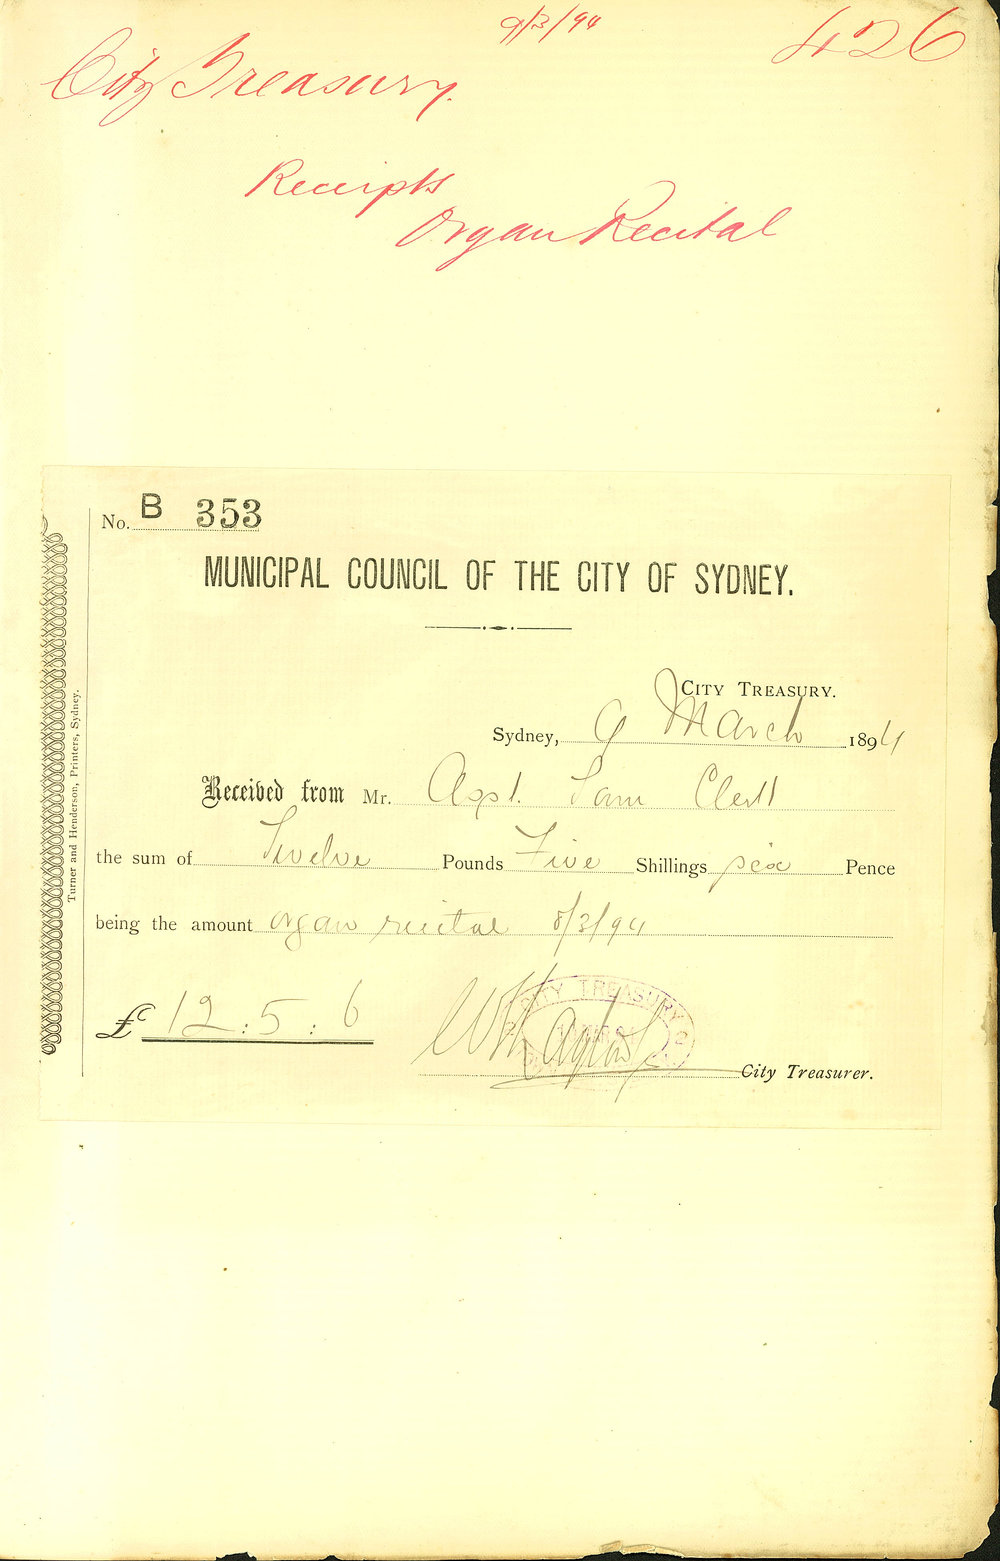 9/3/94
426
City Treasury.
Receipts
Organ Recital
No. B 353
MUNICIPAL COUNCIL OF THE CITY OF SYDNEY.
CITY TREASURY.
Sydney, 9 March 1894
Received from Mr. Asst. Town Clerk
the sum of Twelve Pounds Five Shillings six Pence
being the amount organ recital 8/3/94
£ 12 : 5 : 6
CITY TREASURY
City Treasurer.
Turner and Henderson, Printers, Sydney.